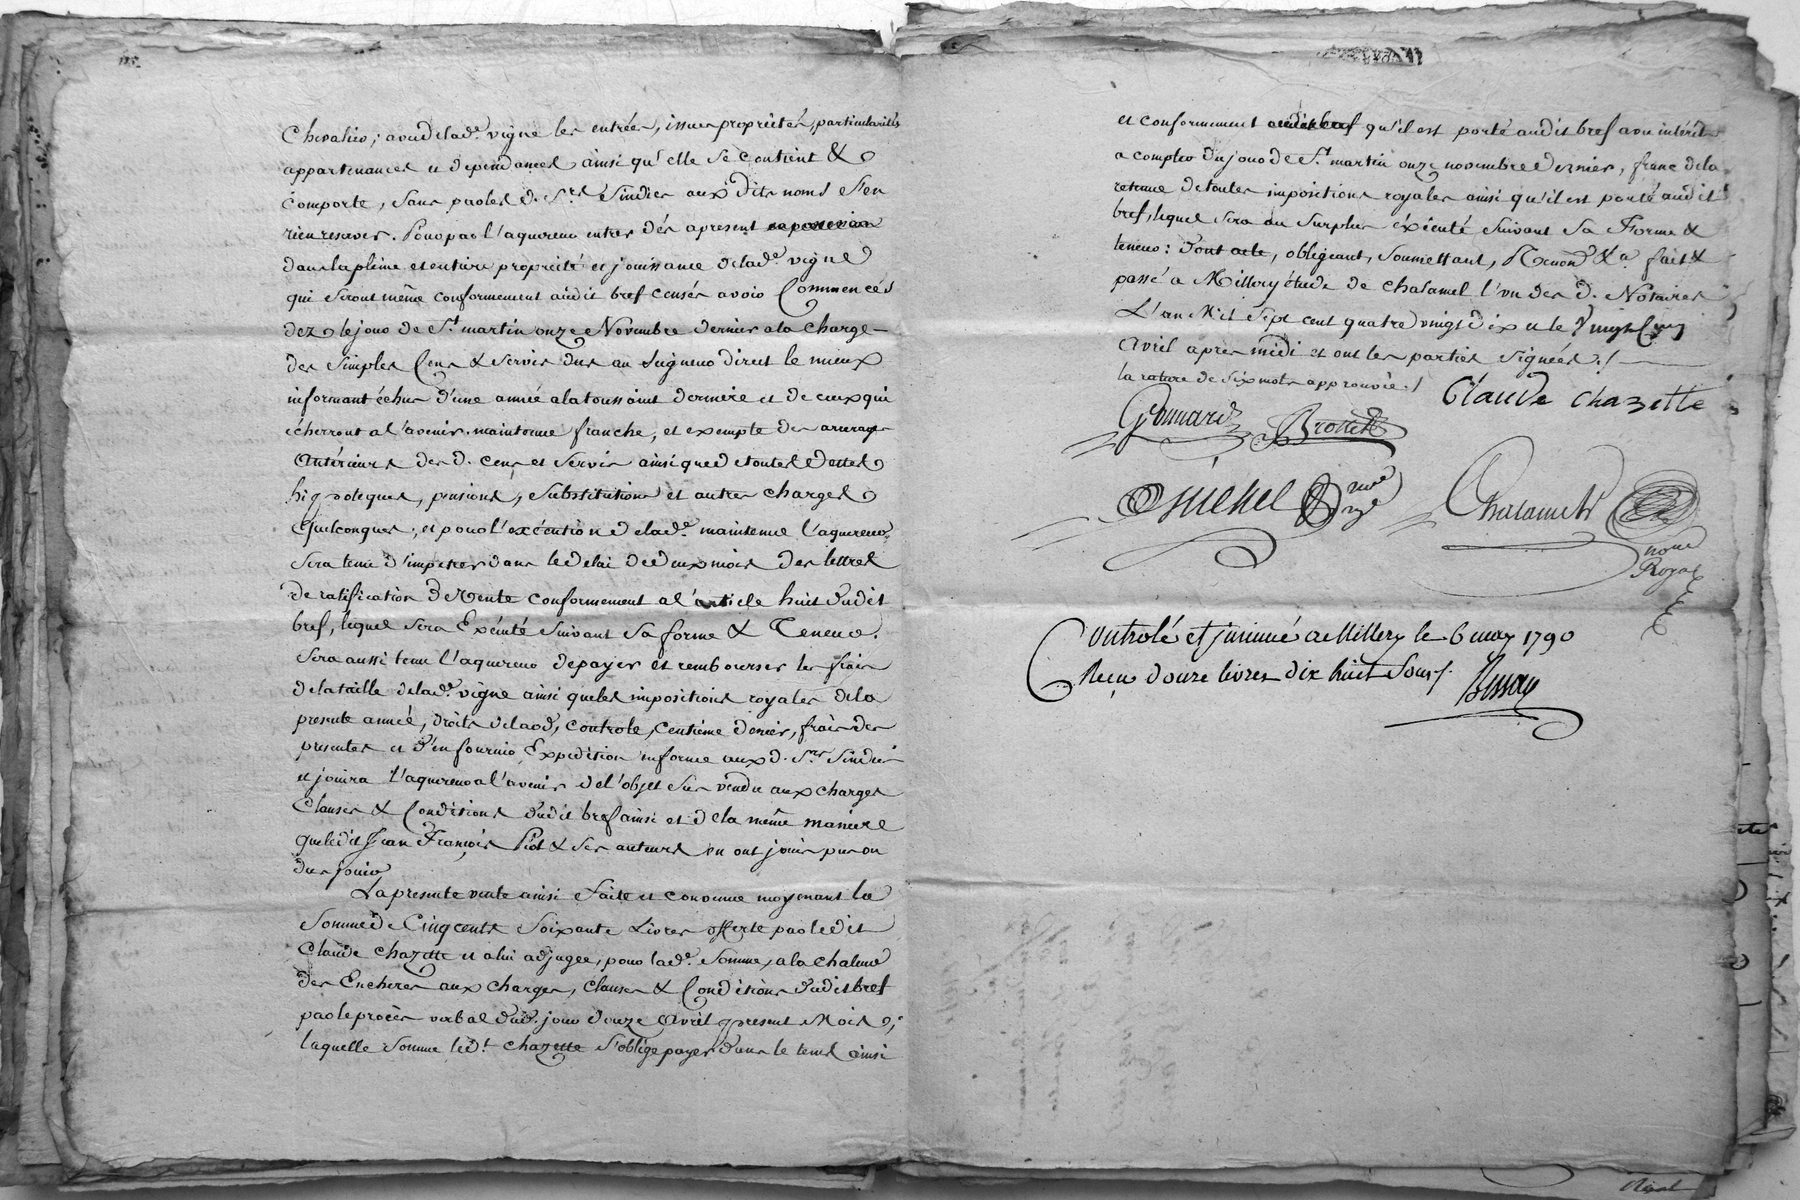 Chevalier; avec de lad.e vigne les entrées, issues proprietés, particularités
appartenances et dependances ainsi qu'elle se contient &
comporte, sans par lesd. S.rs Sindics aux dits noms s'en
rien reserver. Pour par l'aquereur entrer dés apresent en possession
dans la pleine et entiere proprieté et jouissance de lad.e vigne
qui seront même conformement audit bref censés avoir Commencés
dez le jour de S.t martin onze Novembre dernier a la charge
des simples Cens & servis dus au seigneur direct le mieux
informant échus d'une année a la toussaint derniere et de ceux qui
écherront a l'avenir. maintenue franche, et exempte des arrerages
antérieurs des d. cens et servis ainsi que de toutes dettes
hipoteques, pensions, substitutions et autres charges
quelconques; et pour l'exécution de lad.e maintenue l'aquereur
sera tenu d'impetrer dans le delai de deux mois des lettres
de ratification de vente conformement a l'article huit dudit
bref, lequel sera Exécuté suivant sa forme & Teneur.
sera aussi tenu l'aquereur de payer et rembourser les frais
de la taille de lad.e vigne ainsi que les impositions royales de la
presente année, droits de laod, controle, centième denier, frais des
presentes et d'en fournir Expedition en forme aux d. S.rs Sindics
et jouira l'aquereur a l'avenir de l'objet sus vendu aux charges
Clauses & Conditions dudit bref ainsi et de la même maniere
que ledit Jean François Piot & ses auteurs en ont joui pu ou
du jouir
La presente vente ainsi faite et convenue moyenant la
somme de Cinq cents soixante Livres offerte par ledit
Claude Chazette et a lui adjugée, pour lad.e somme, a la chaleur
des Encheres aux charges, clauses & Conditions dudit bref
par le procès verbal dud. jour douze Avril present Mois;
laquelle somme led.t Chazette s'oblige payer dans le tems ainsi
et conformement qu'il est porté audit bref avec intérêts
a compter du jour de S.t martin onze novembre dernier, franc de la
retenue de toutes impositions royales ainsi qu'il est porté audit
bref, lequel sera au surplus éxécuté suivant sa Forme &
teneur: Dont acte, obligeant, soumettant, Renonc.t &.a fait &
passé a Millery étude de Chalamel l'un des d. Notaires
L'an Mil sept cent quatre vingt dix et le vingt Cinq
Avril après midi et ont les parties signées./
la rature de six mots approuvée./
Claude Chazette
Gonnard
Brottet
Michel
Chalamel
no.re Royal
Controlé et insinué a Millery le 6 may 1790
Reçu douze livres dix huit sous/.